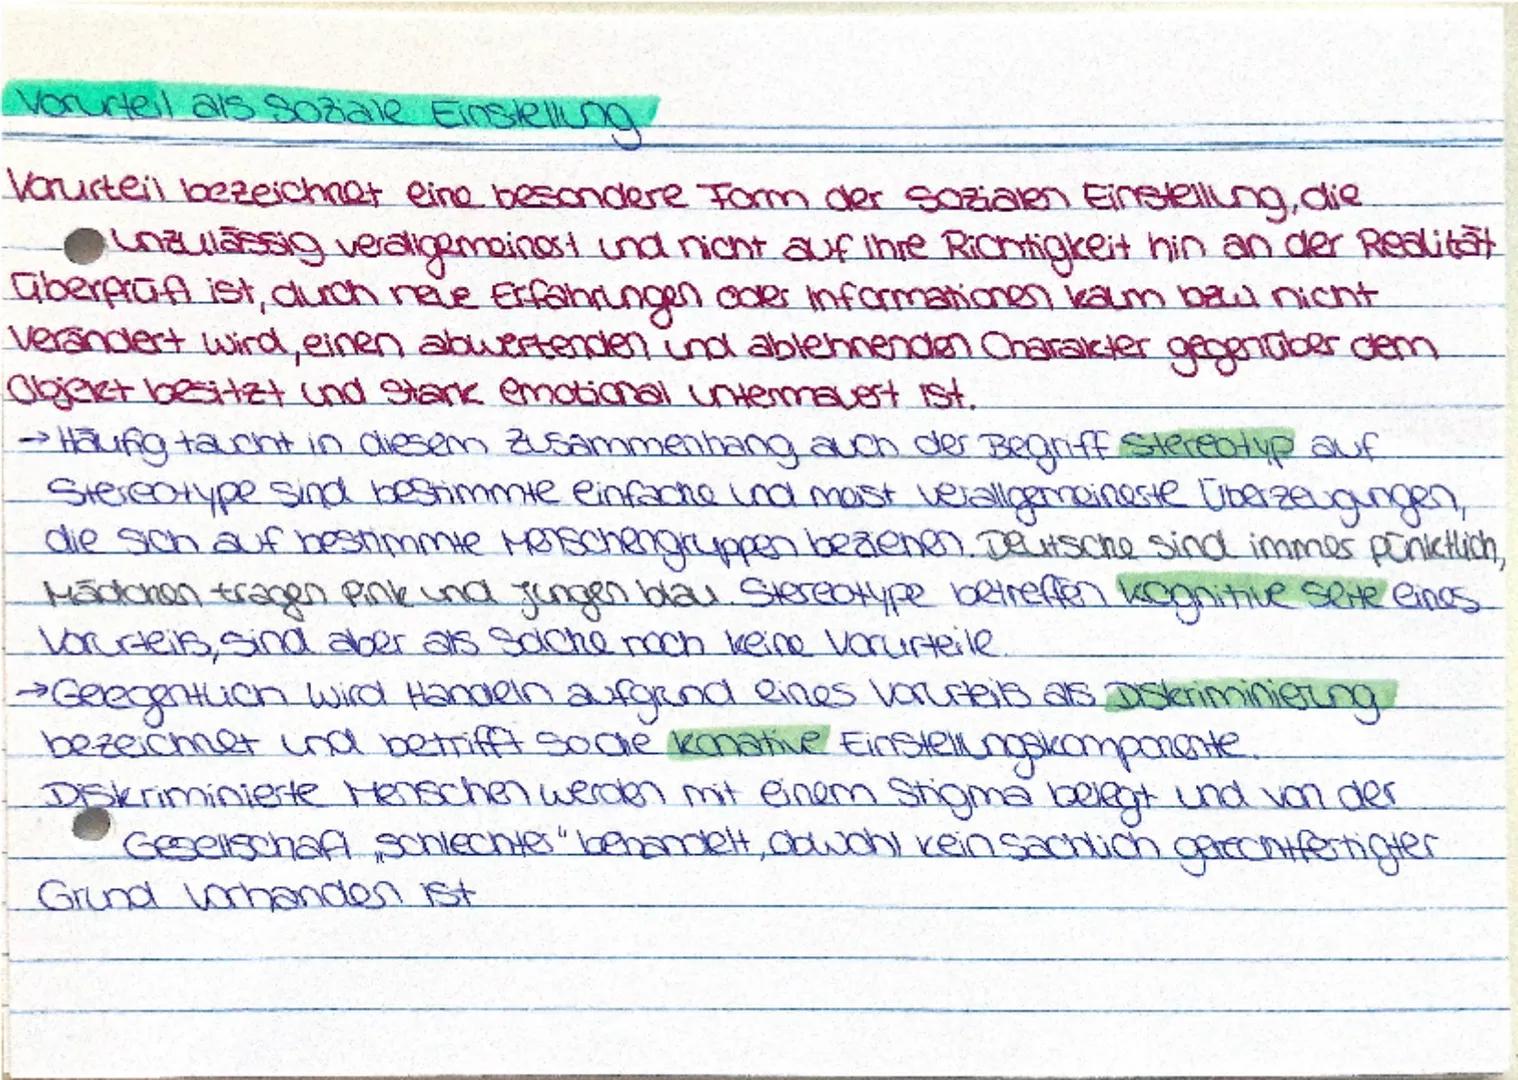 Vorurteil als soziale Einstellung
Vorurteil bezeichnet eine besondere Form der sozialen Einstellung, die
unzulässig verallgemeinert und nicht auf ihre Richtigkeit hin an der Realität
überprüft ist, durch neue Erfahrungen oder Informationen kaum bzw nicht
verändert wird, einen abwertenden und ablehnenden Charakter gegenüber dem
Objekt besitzt und stark emotional untermauert ist.
→ Häufig taucht in diesem Zusammenhang auch der Begriff Stereotyp auf
Stereotype sind bestimmte einfache und meist verallgemeinerte Überzeugungen,
die sich auf bestimmte Menschengruppen beziehen. Deutsche sind immer pünktlich,
Mädchen tragen pink und Jungen blau. Stereotype betreffen kognitive Seite eines
Vorurteils, sind aber als solche noch keine Vorurteile.
→ Gelegentlich wird Handeln aufgrund eines Vorurteils als Diskriminierung
bezeichnet und betrifft so die konative Einstellungskomponente.
Diskriminierte Menschen werden mit einem Stigma belegt und von der
Gesellschaft „schlechter" behandelt, obwohl kein sachlich gerechtfertigter
Grund vorhanden ist